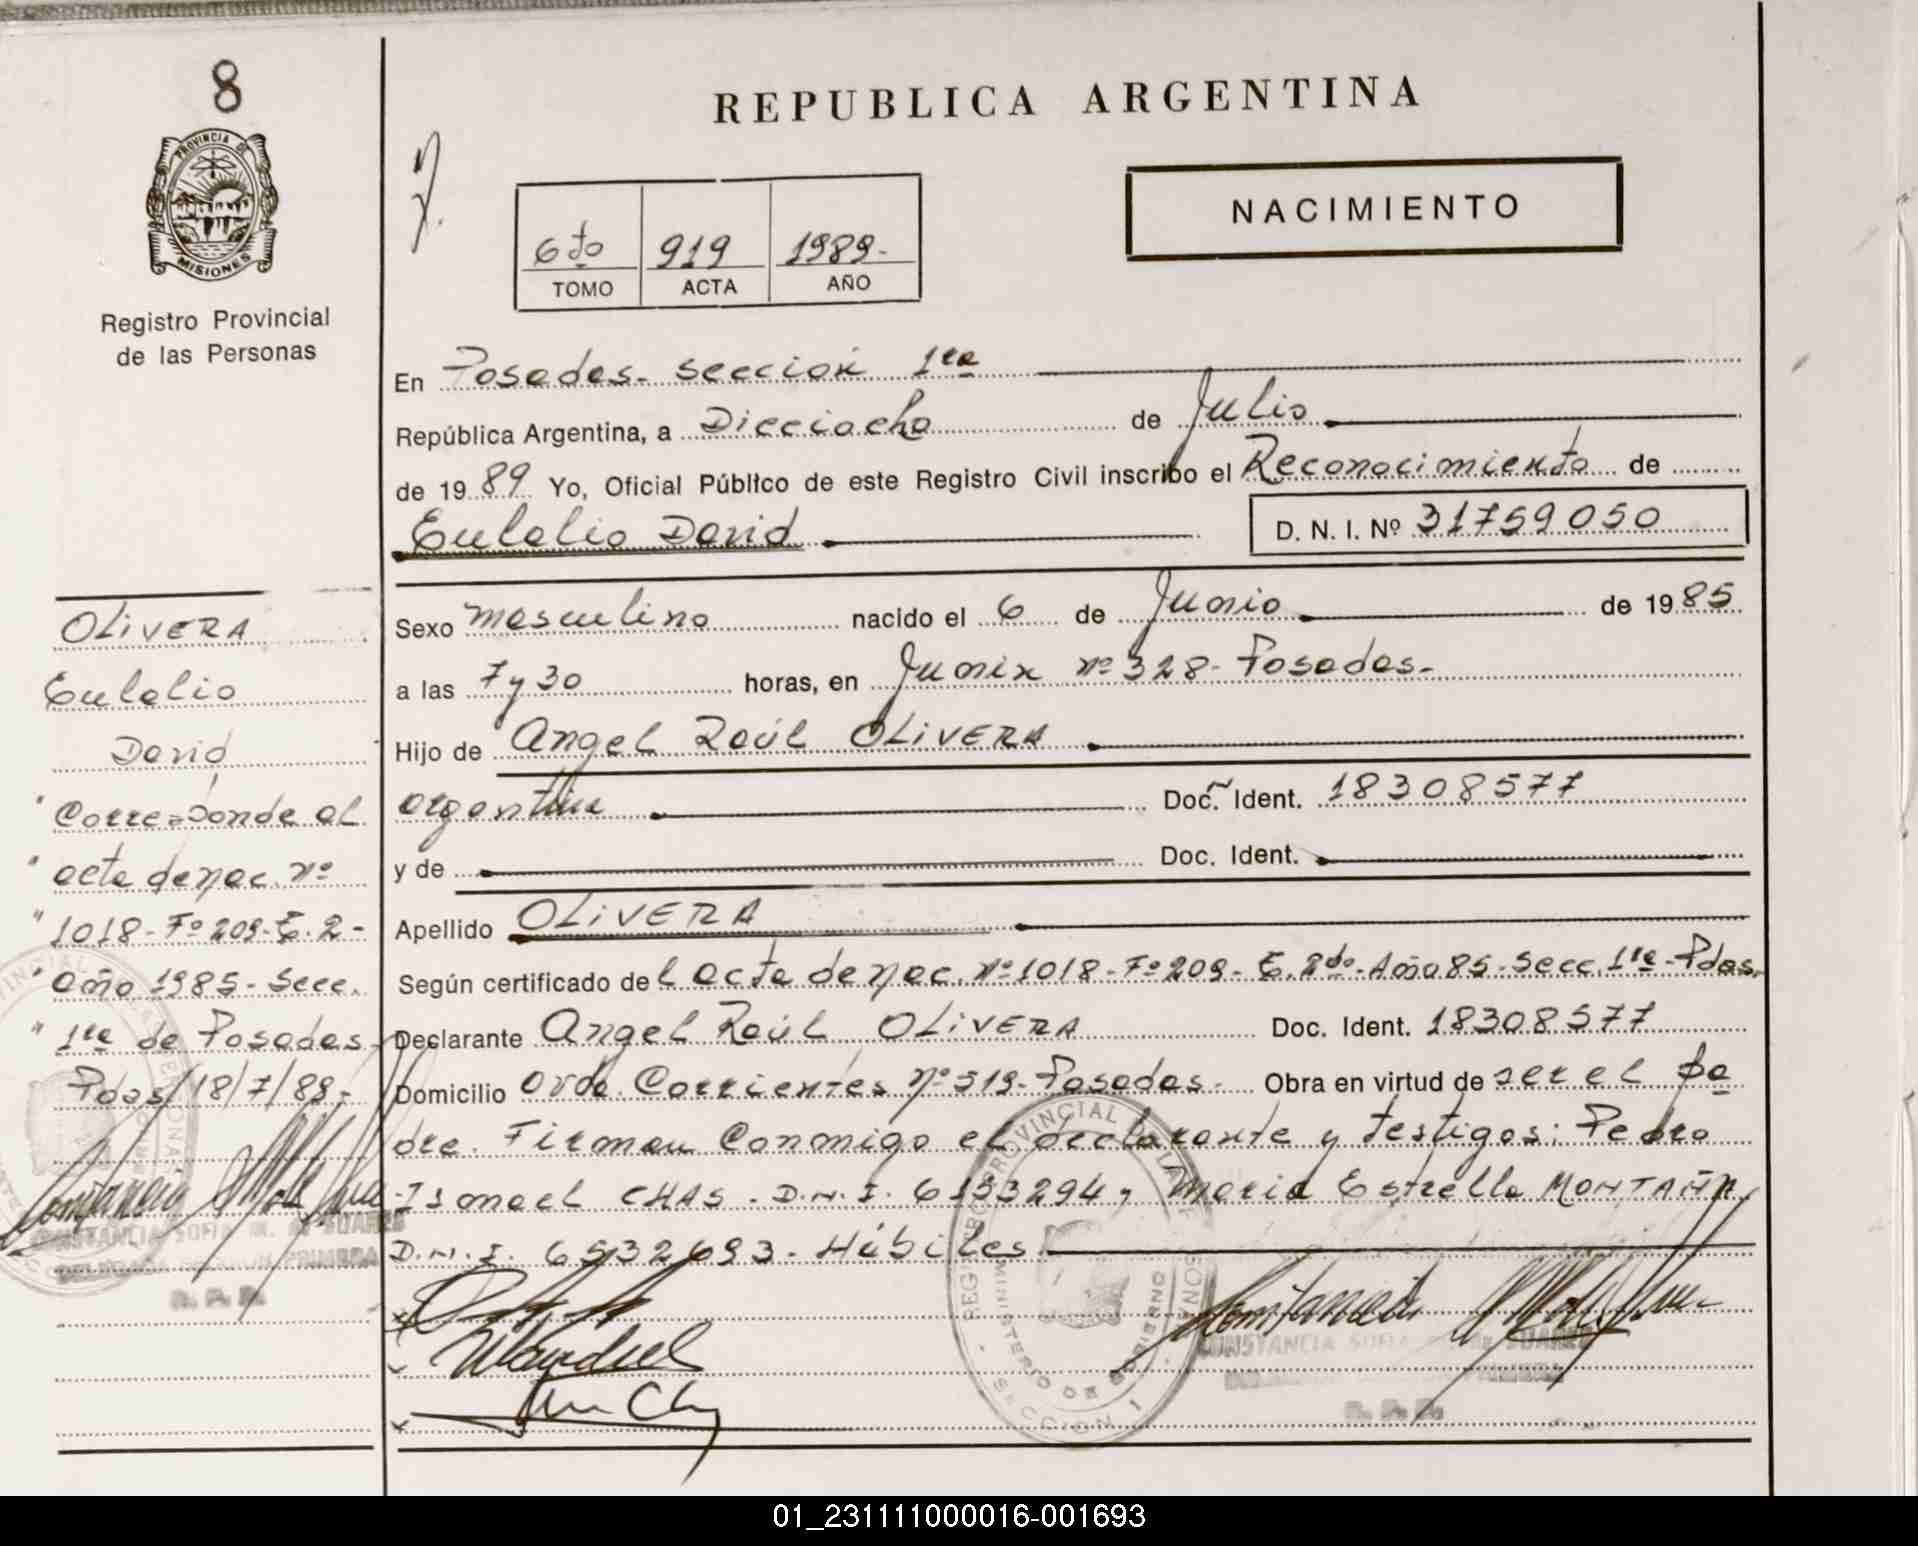 8
PROVINCIA DE
MISIONES
Registro Provincial
de las Personas
REPUBLICA ARGENTINA
NACIMIENTO
6to 919 1989.-
TOMO ACTA AÑO
En Posadas. sección 1ra
República Argentina, a Dieciocho de Julio
de 1989 Yo, Oficial Público de este Registro Civil inscribo el Reconocimiento de
Eulalio David D. N. I. Nº 31759050
Sexo masculino nacido el 6 de Junio de 1985
a las 7 y 30 horas, en Junin nº 328- Posadas.-
Hijo de Angel Raúl OLIVERA
argentina Doc. Ident. 18308577
y de Doc. Ident.
Apellido OLIVERA
Según certificado del acta de nac. nº 1018- Fº 209- T. 2do- Año 85- Secc. 1ra- Pdas.
Declarante Angel Raúl OLIVERA Doc. Ident. 18308577
Domicilio Avda. Corrientes nº 519- Posadas.- Obra en virtud de ser el pa
dre. Firman conmigo el declarante y testigos: Pedro
Ismael CHAS. D.N.I. 6133294 y Maria Estrella MONTAÑA,
D.N.I. 6532693- Hábiles.
OLIVERA
Eulalio
David
" Corresponde al
" acta de nac. nº
" 1018- Fº 209- T. 2-
" año 1985- Secc.
" 1ra de Posadas.
Pdas/18/7/89.-
CONSTANCIA SOFIA M. DE SUAREZ
SECCION PRIMERA
R. P. P.
REGISTRO PROVINCIAL DE LAS PERSONAS
MINISTERIO DE GOBIERNO
SECCION 1
CONSTANCIA SOFIA SUAREZ
R. P. P.
01_231111000016-001693